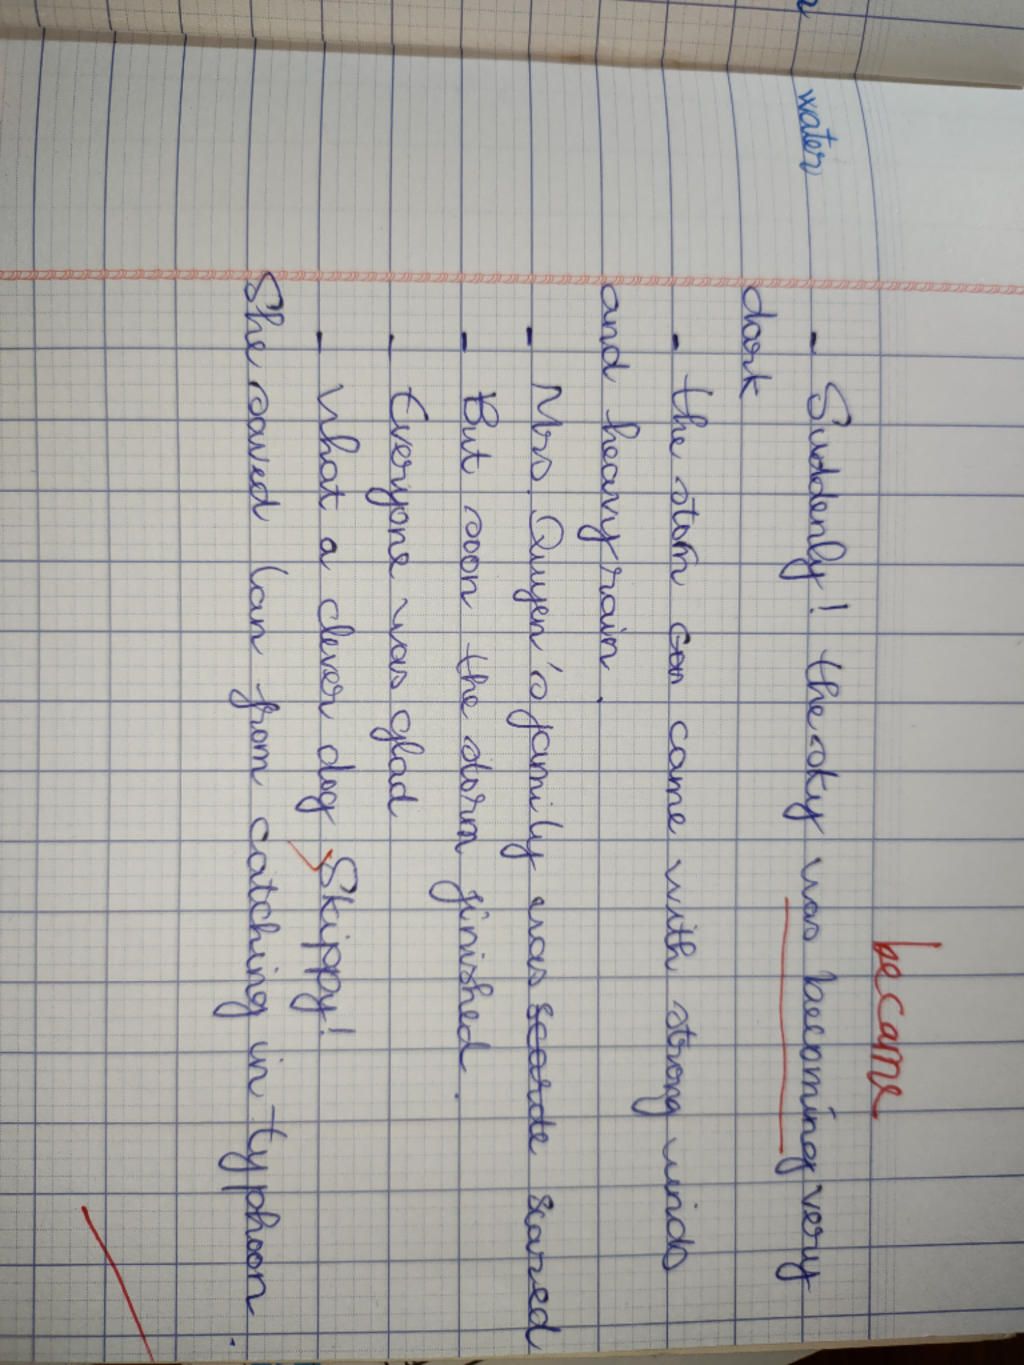 became
water - Suddenly! the sky was becoming very
dark
- the storm came with strong winds
and heavy rain.
- Mrs. Quyen's family was scarde scared
- But soon the storm finished.
- Everyone was glad
- What a clever dog Skippy!
She saved Lan from catching in typhoon.